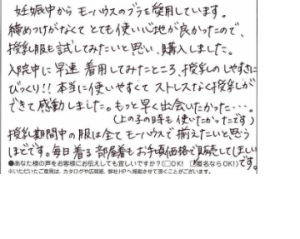 妊娠中から モーハウスのブラを愛用しています。
締めつけがなくて とても使い心地が良かったので、
授乳服も試してみたいと思い、購入しました。
入院中に早速 着用してみたところ、授乳のしやすさに
びっくり!! 本当に使いやすくて ストレスなく授乳が
できて感動しました。もっと早く出会いたかった…。
(上の子の時も使いたかったです)
授乳期間中の服は全て モーハウスで揃えたいと思う
ほどです。毎日着る 部屋着も お手頃価格で販売してほしい
です。
●あなた様の声をお客様にお伝えしても宜しいですか?(□OK! □匿名ならOK!)
※いただいたご意見は、カタログや広報紙、弊社HPへ掲載させて頂くことがございます。